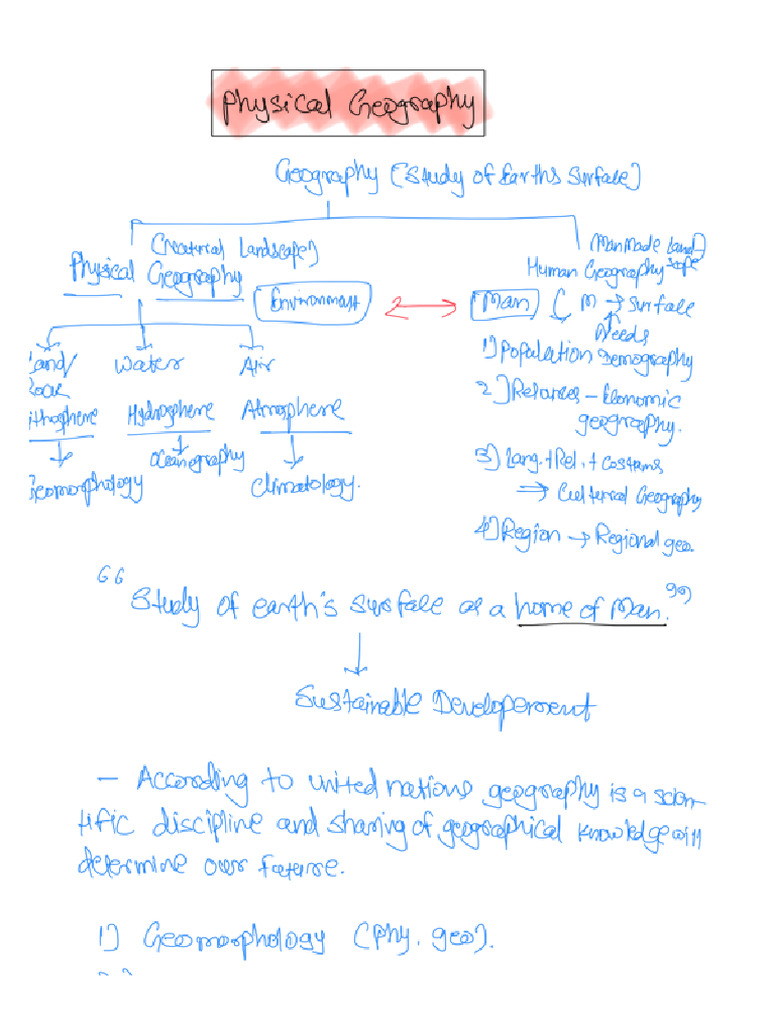 Physical Geography
Geography (Study of Earths Surface)
(Natural Landscape)
Physical Geography
Environment
Man
(Manmade Land
scape
Human Geography
( M → Surface
Needs
Land/
Water
Air
Hydrosphere
Atmosphere
oceanography
Climatology.
1) Population Demography
2) - Economic
geography.
3) Lang. + Rel. + Costams
⇒ Cultural Geography
4) Region → Regional geo.
"Study of earth's surface as a home of Man."
Sustainable Developement
- According to united nations geography is a scien-
tific discipline and sharing of geographical knowledge will
determine our future.
1) Geomorphology (Phy. geo).